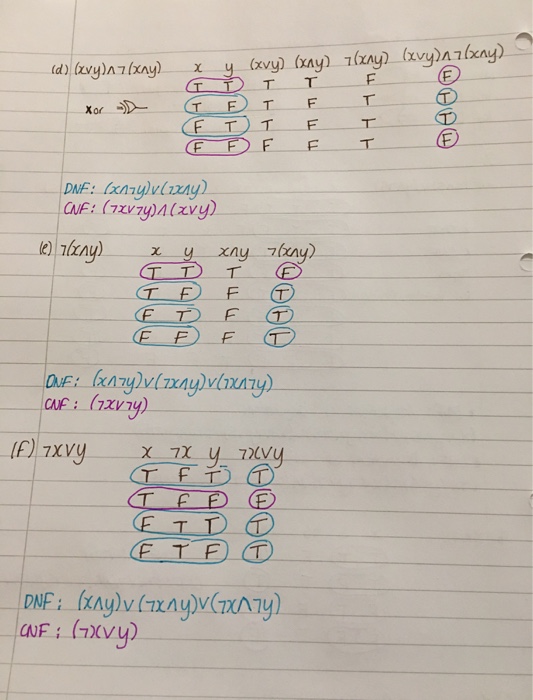 (d) (x∨y)∧¬(x∧y) x y (x∨y) (x∧y) ¬(x∧y) (x∨y)∧¬(x∧y)
T T T T F F
Xor T F T F T T
F T T F T T
F F F F T F
DNF: (x∧¬y)∨(¬x∧y)
CNF: (¬x∨¬y)∧(x∨y)
(e) ¬(x∧y) x y x∧y ¬(x∧y)
T T T F
T F F T
F T F T
F F F T
DNF: (x∧¬y)∨(¬x∧y)∨(¬x∧¬y)
CNF: (¬x∨¬y)
(F) ¬x∨y x ¬x y ¬x∨y
T F T T
T F F F
F T T T
F T F T
DNF: (x∧y)∨(¬x∧y)∨(¬x∧¬y)
CNF: (¬x∨y)